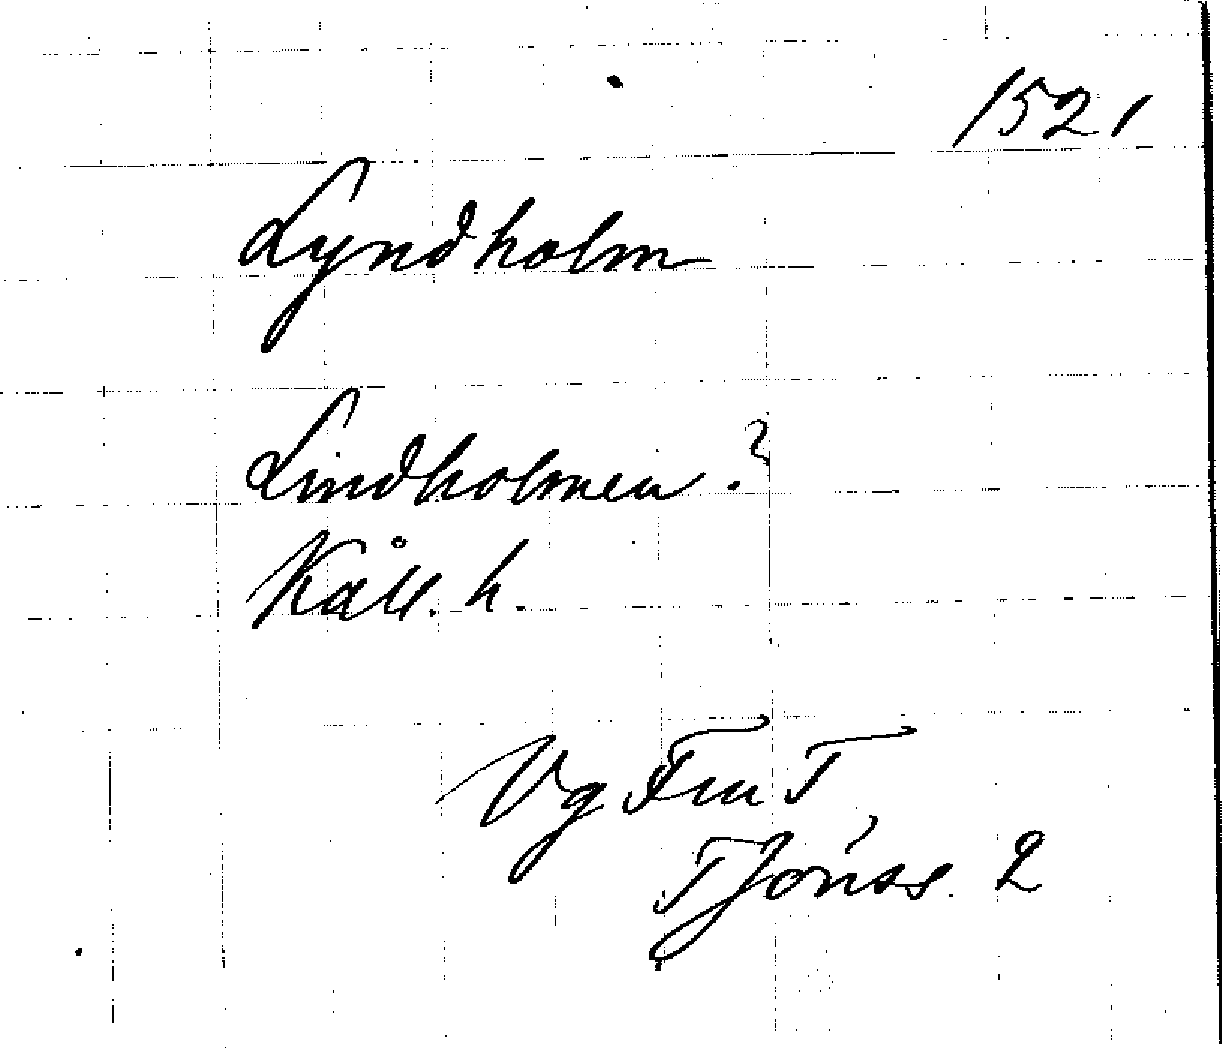 1521
Lyndholm
Lindholmen ?
Kåll. h.
Vg Fru T
T Jönss. 2